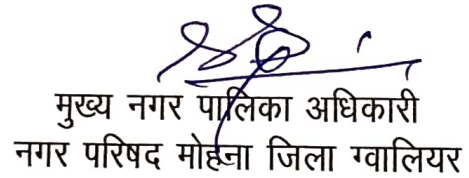 मुख्य नगर पालिका अधिकारी
नगर परिषद मोहना जिला ग्वालियर